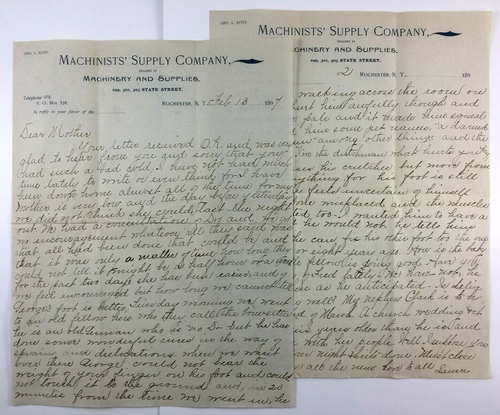 GEO. A. REYES.
MACHINISTS' SUPPLY COMPANY,
DEALERS IN
MACHINERY AND SUPPLIES,
STATE STREET.
Telephone 978.
P. O. Box 728.
In reply to your favor of the
ROCHESTER, N. Y., Feb 13 1897
Dear Mother
Your letter received O.K. and was very
glad to hear from you and sorry that you
had such a bad cold. I have not had much
time lately to write or anything for I have
been down home almost all of the time for my
Mother is very low and the day before yesterday
we did not think she could last the night
out. We had a consultation of Drs and He got
no encouragement whatever all they said was
that all had been done that could be and
that it was only a matter of time how long they
could not tell it might be a half hour or a week
for the past two days she has been easier, and
we feel encouraged but how long we cannot tell.
George's foot is better. Tuesday morning we went
to an old fellow here who they call the bone setter
he is an old German who is no Dr. but he has
done some wonderful cures in the way of
sprains and dislocations. When we went
over there George could not bear the
weight of your finger on his foot and could
not touch it to the ground and in 20
minutes from the time we went in, he
MACHINISTS' SUPPLY COMPANY,
DEALERS IN
MACHINERY AND SUPPLIES,
STATE STREET.
2 ROCHESTER, N. Y., 189
walking across the room on
hurt him awfully though and
pale and it made him squeal
him some pet names "a darned
many other things and the
the dutchman what hurts pretty
his crutches but more from
anything for his foot is still
feels uncertain of himself
bone misplaced and the muscles
too. I wanted him to have a
he would not, he tells him
he can fix his other foot too the one
or eight years ago. How is the baby
fellow this long while
Fred lately? We have not, he
as he anticipated. Is
well? My nephew Clark is to be
of March A church wedding
six years older than he is and
with her people well I suppose
night shirts done. Must close
is all the news love to all Laura